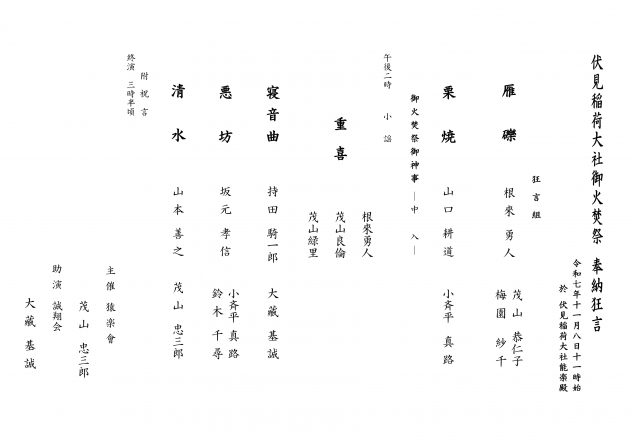 伏見稲荷大社御火焚祭 奉納狂言
令和七年十一月八日十一時始
於 伏見稲荷大社能楽殿
狂言組
雁礫 根來勇人 茂山恭仁子
梅園紗千
栗焼 山口耕道 小斉平真路
御火焚祭御神事 ―中入―
午後二時 小謡
根來勇人
重喜 茂山良倫
茂山緑里
寝音曲 持田騎一郎 大藏基誠
悪坊 坂元孝信 小斉平真路
鈴木千尋
清水 山本善之 茂山忠三郎
附祝言
終演 三時半頃
主催 猿楽會
茂山忠三郎
助演 誠翔会
大藏基誠